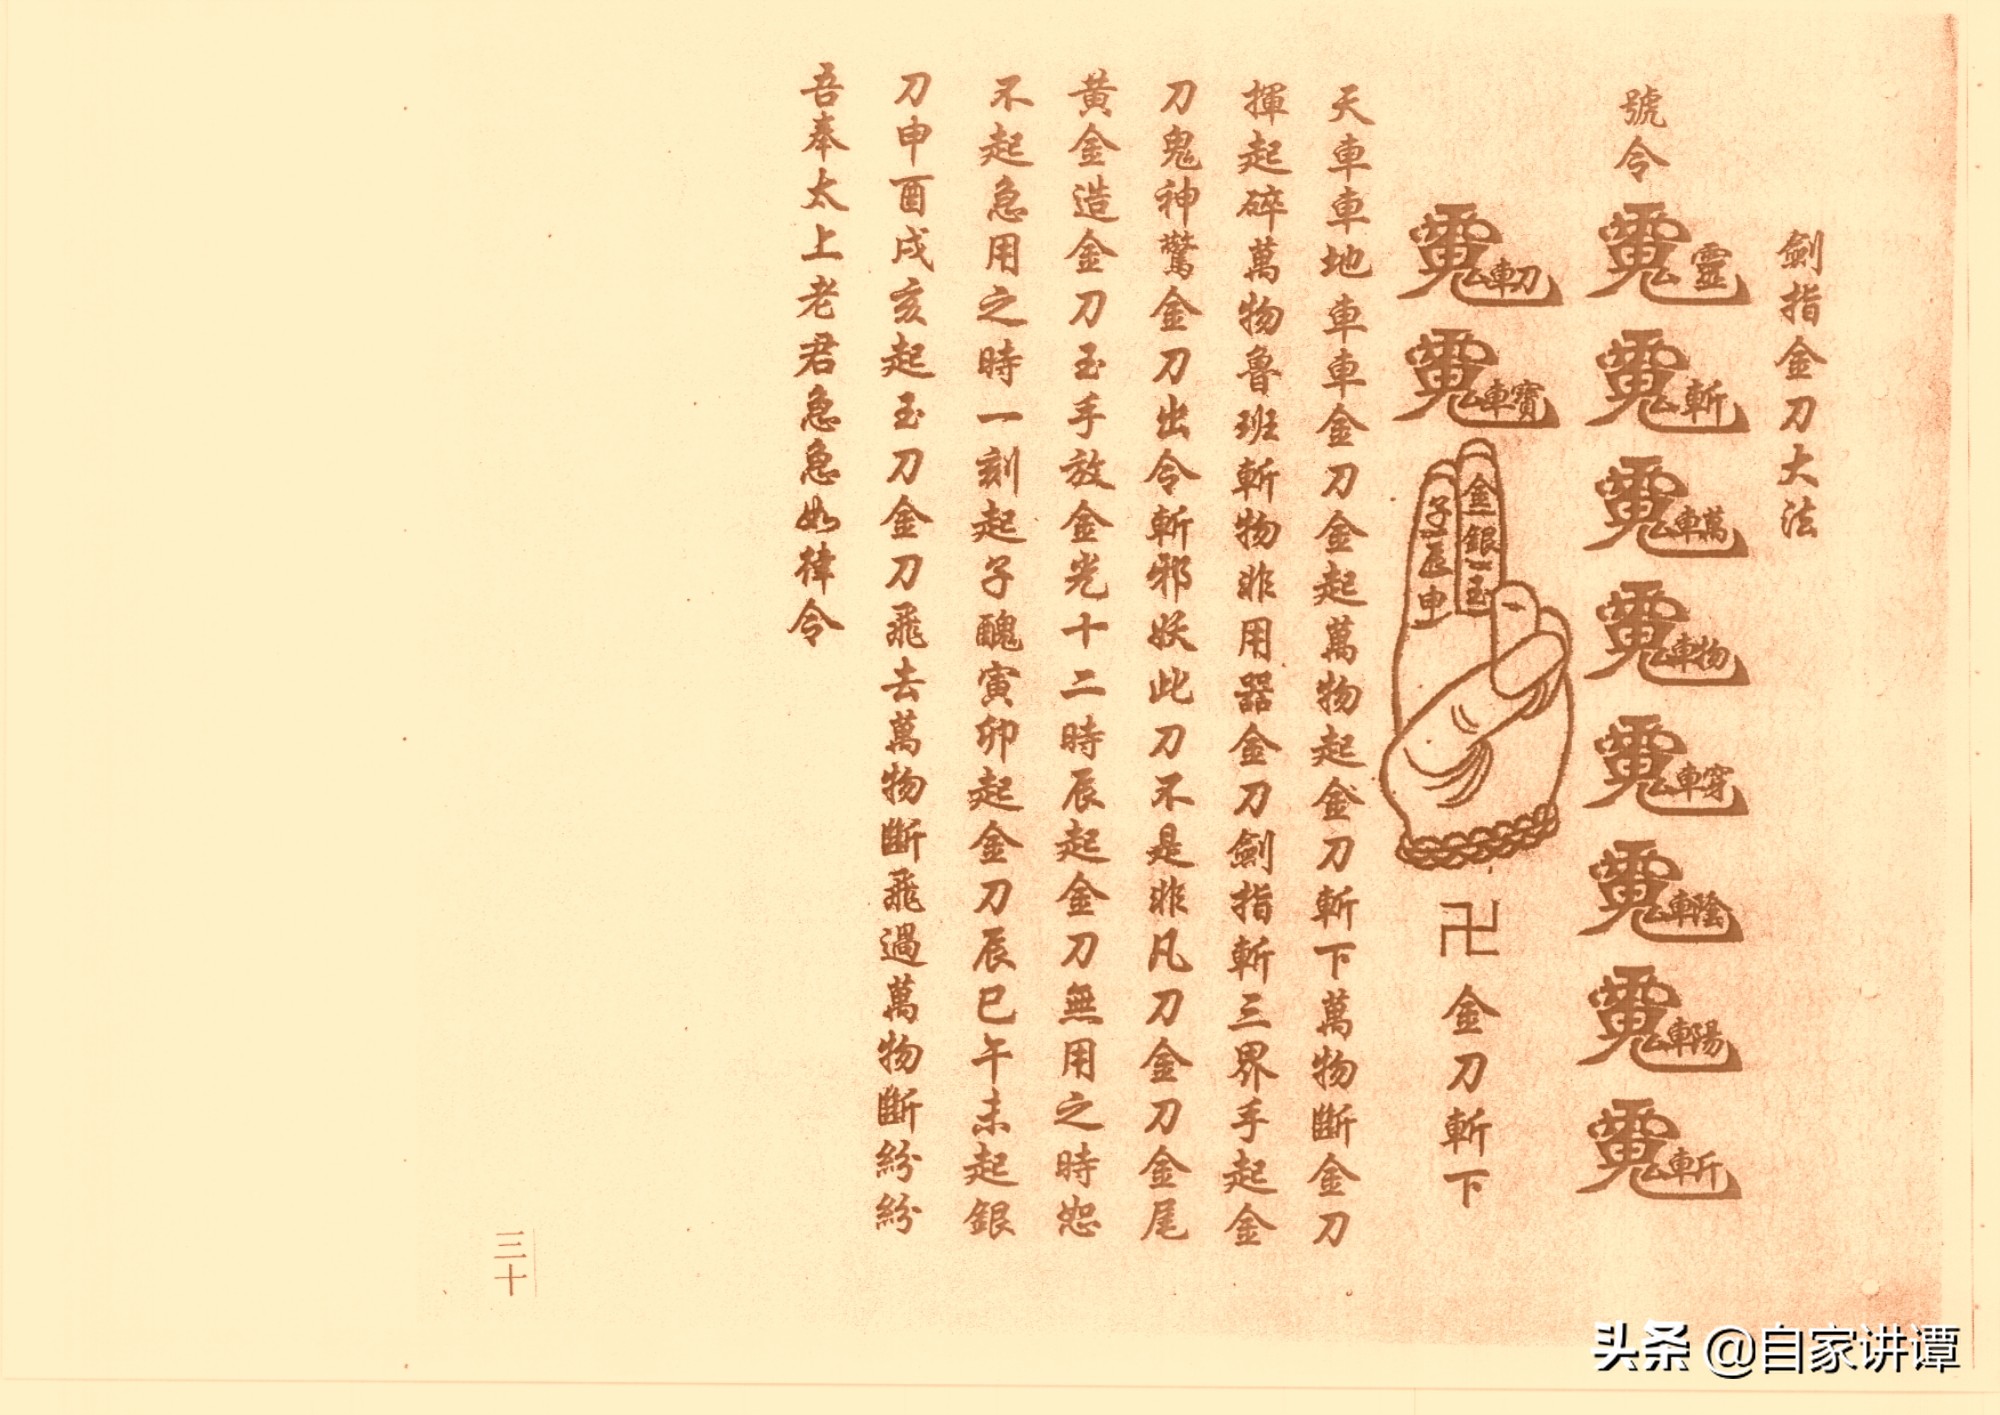 劍指金刀大法
號令
靈
斬
車萬
車物
車穿
車陰
車陽
車斤
車刀
車寶
金銀玉
子辰申
卍金刀斬下
天車車地車車金刀金起萬物起金刀斬下萬物斷金刀
揮起碎萬物魯班斬物非用器金刀劍指斬三界手起金
刀鬼神驚金刀出令斬邪妖此刀不是非凡刀金刀金尾
黃金造金刀玉手放金光十二時辰起金刀無用之時恕
不起急用之時一刻起子醜寅卯起金刀辰巳午未起銀
刀申酉戌亥起玉刀金刀飛去萬物斷飛過萬物斷紛紛
吾奉太上老君急急如律令
三十
头条 @自家讲谭